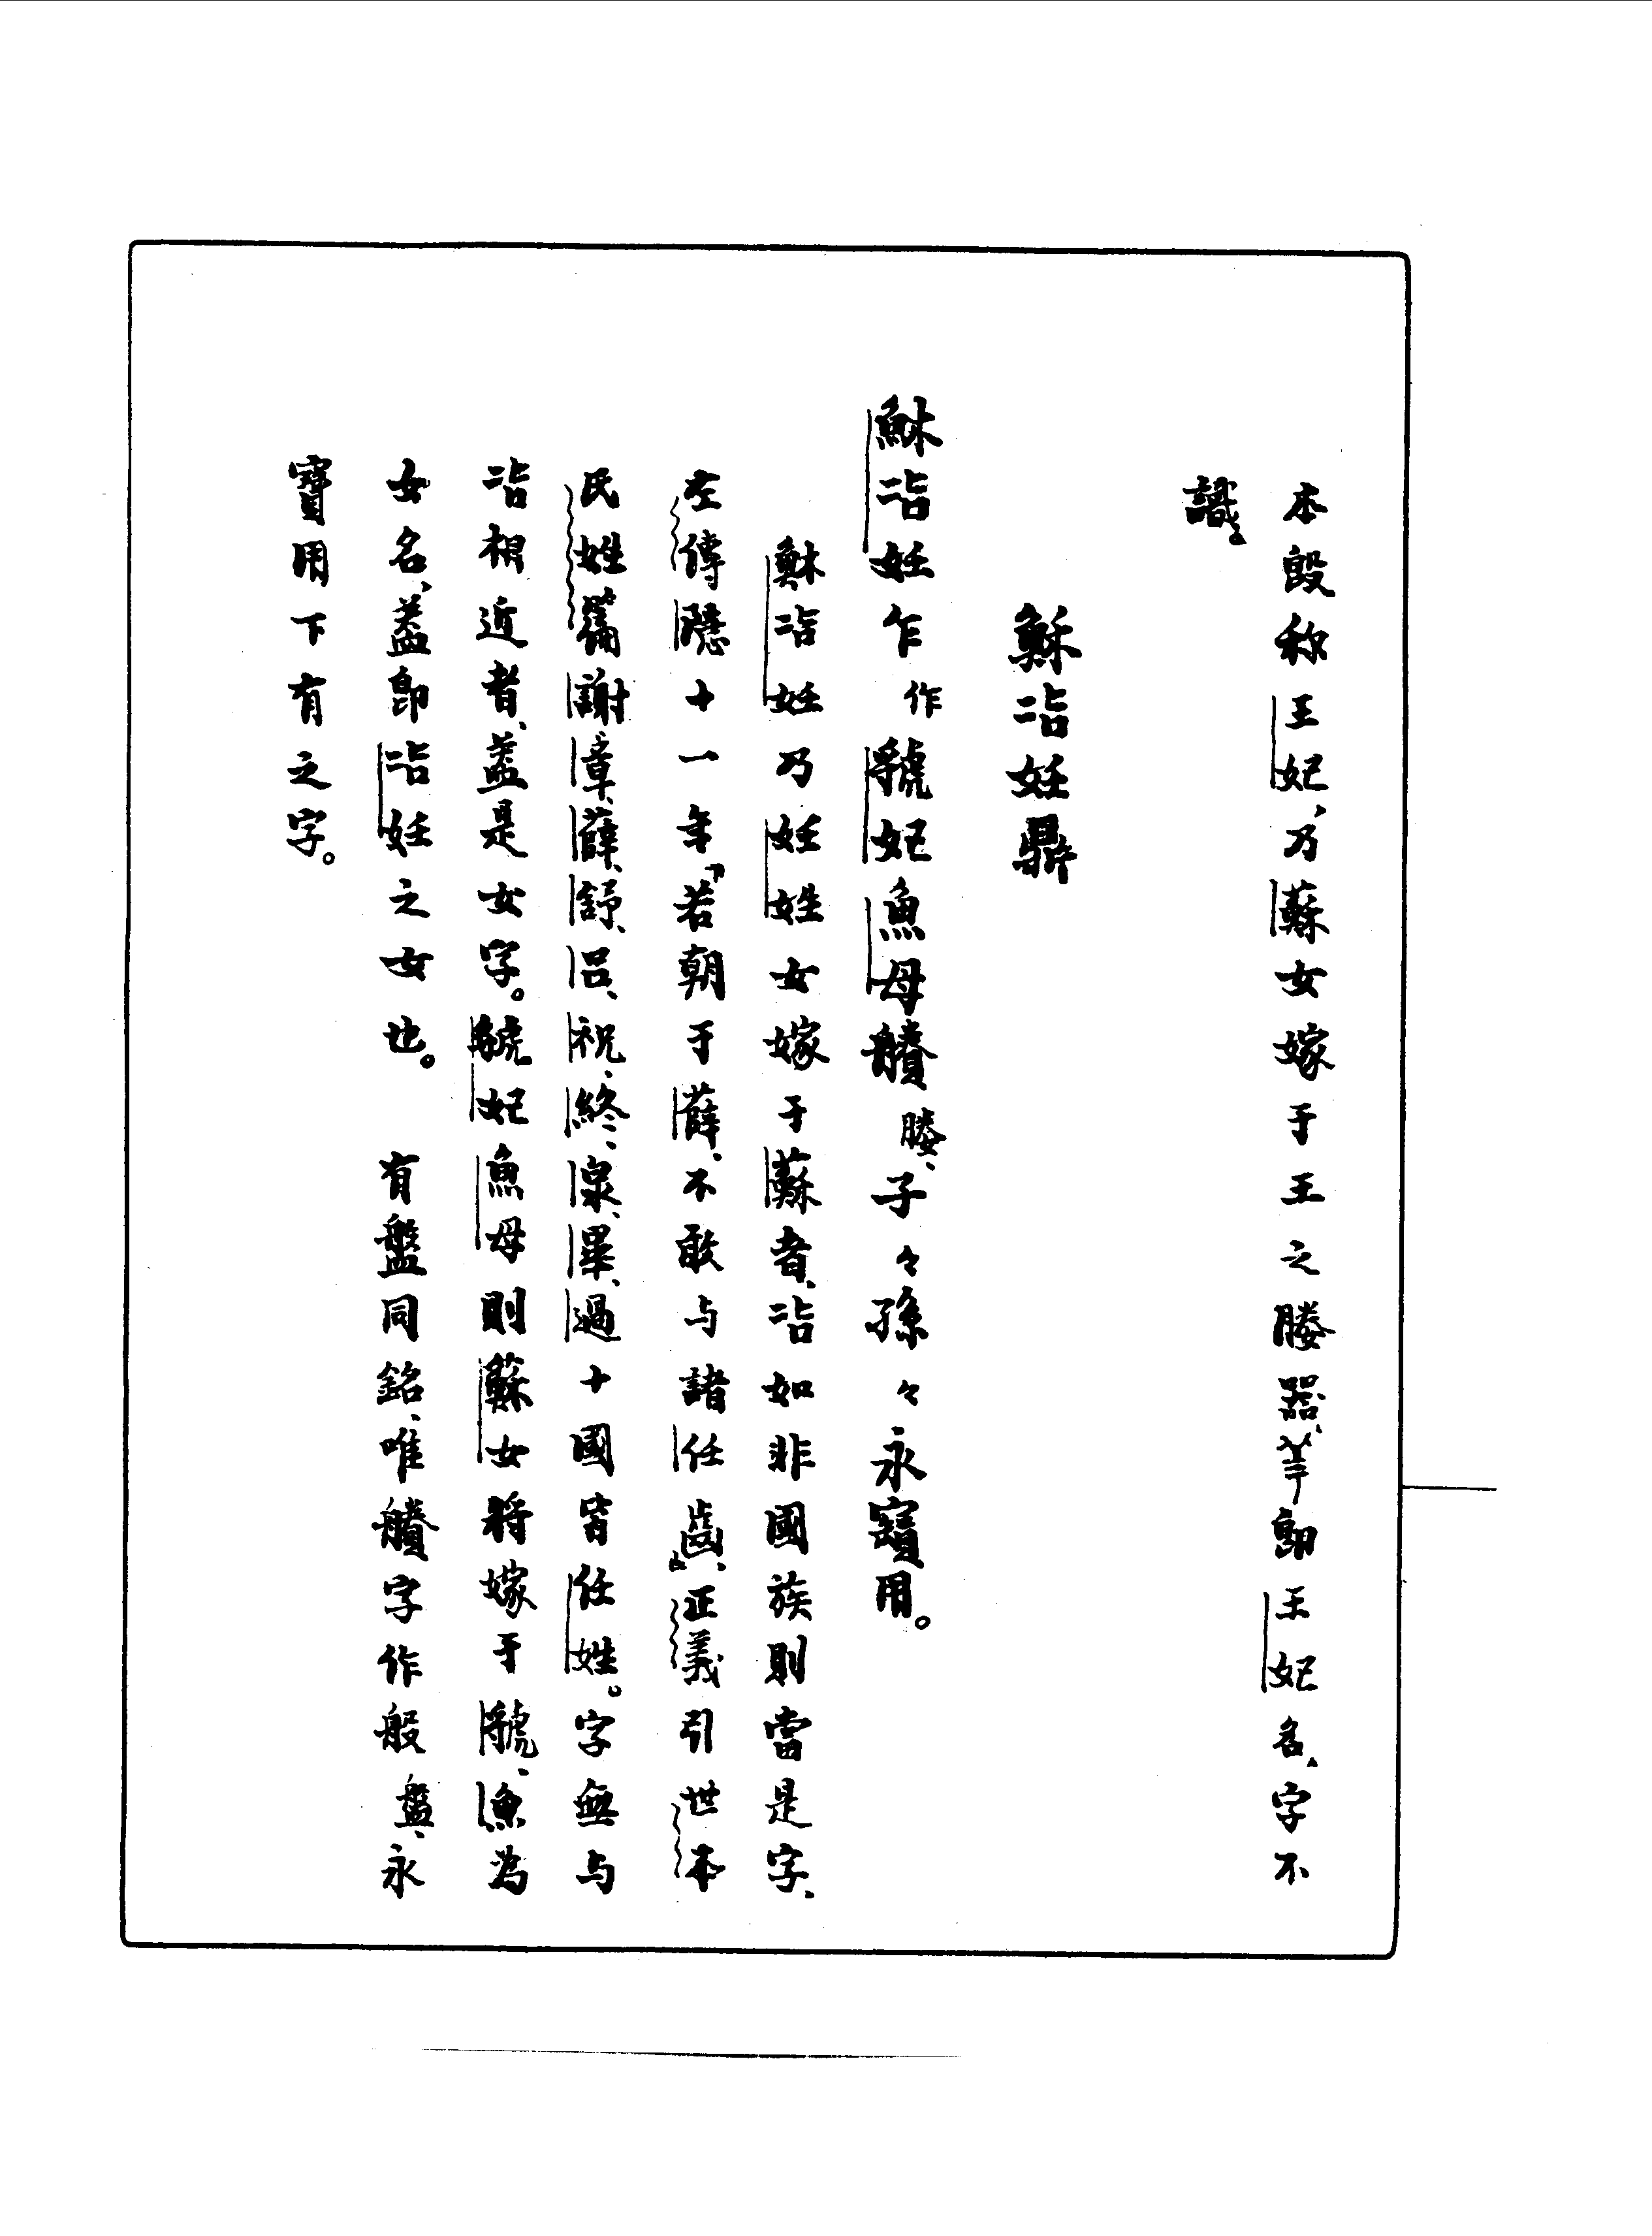 本𣪘称王妃、乃蘇女嫁于王之媵器、𦍒即王妃名、字不
識。
穌冶妊鼎
穌冶妊乍作虢妃魚母賸媵、子々孫々永寶用。
穌冶妊乃妊姓女嫁于蘇者、冶如非國族則當是字、
左傳隱十一年「若朝于薛、不敢与諸任齒」、正義引世本
氏姓篇謝、章、薛、舒、呂、祝、終、泉、畢、過十國皆任姓。字無与
冶相近者、蓋是女字。虢妃魚母則蘇女將嫁于虢、魚為
女名、蓋即冶妊之女也。　有盤同銘、唯賸字作般盤、永
寶用下有之字。